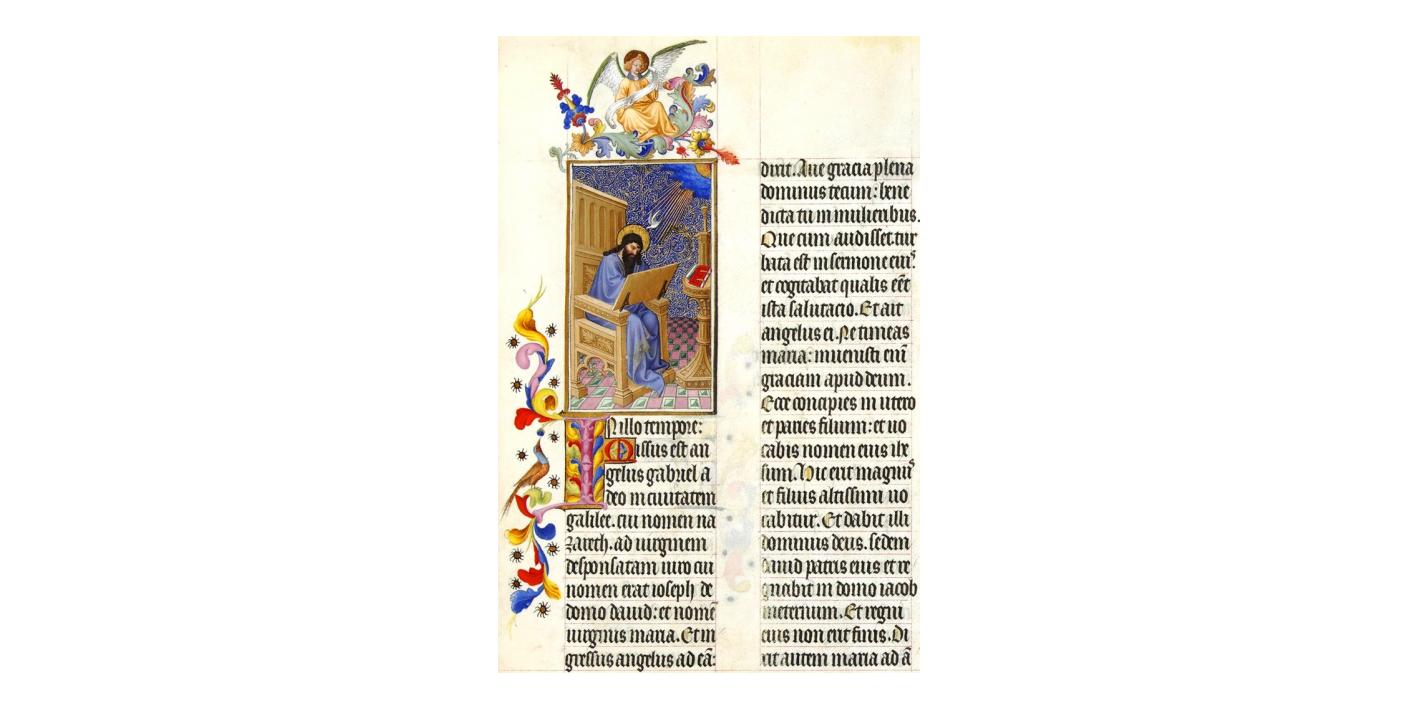 In illo tempore:
Missus est an
gelus gabriel a
deo in ciuitatem
galilee. cui nomen na
zareth. ad uirginem
desponsatam uiro cui
nomen erat ioseph de
domo dauid: et nomē
uirginis maria. Et in
gressus angelus ad eā:
dixit. Aue gracia plena
dominus tecum: bene
dicta tu in mulieribus.
Que cum audisset. tur
bata est in sermone eius
et cogitabat qualis eēt
ista salutacio. Et ait
angelus ei. Ne timeas
maria: inuenisti enī
graciam apud deum.
Ecce concipies in utero
et paries filium: et uo
cabis nomen eius ihe
sum. Hic erit magnus
et filius altissimi uo
cabitur. Et dabit illi
dominus deus. sedem
dauid patris eius et re
gnabit in domo iacob
in eternum. Et regni
eius non erit finis. Di
xit autem maria ad ā